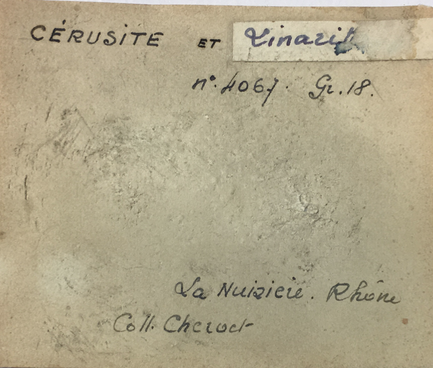 CÉRUSITE ET Linarit
n° 4067. Gr. 18.
La Nuizière. Rhône
Coll.